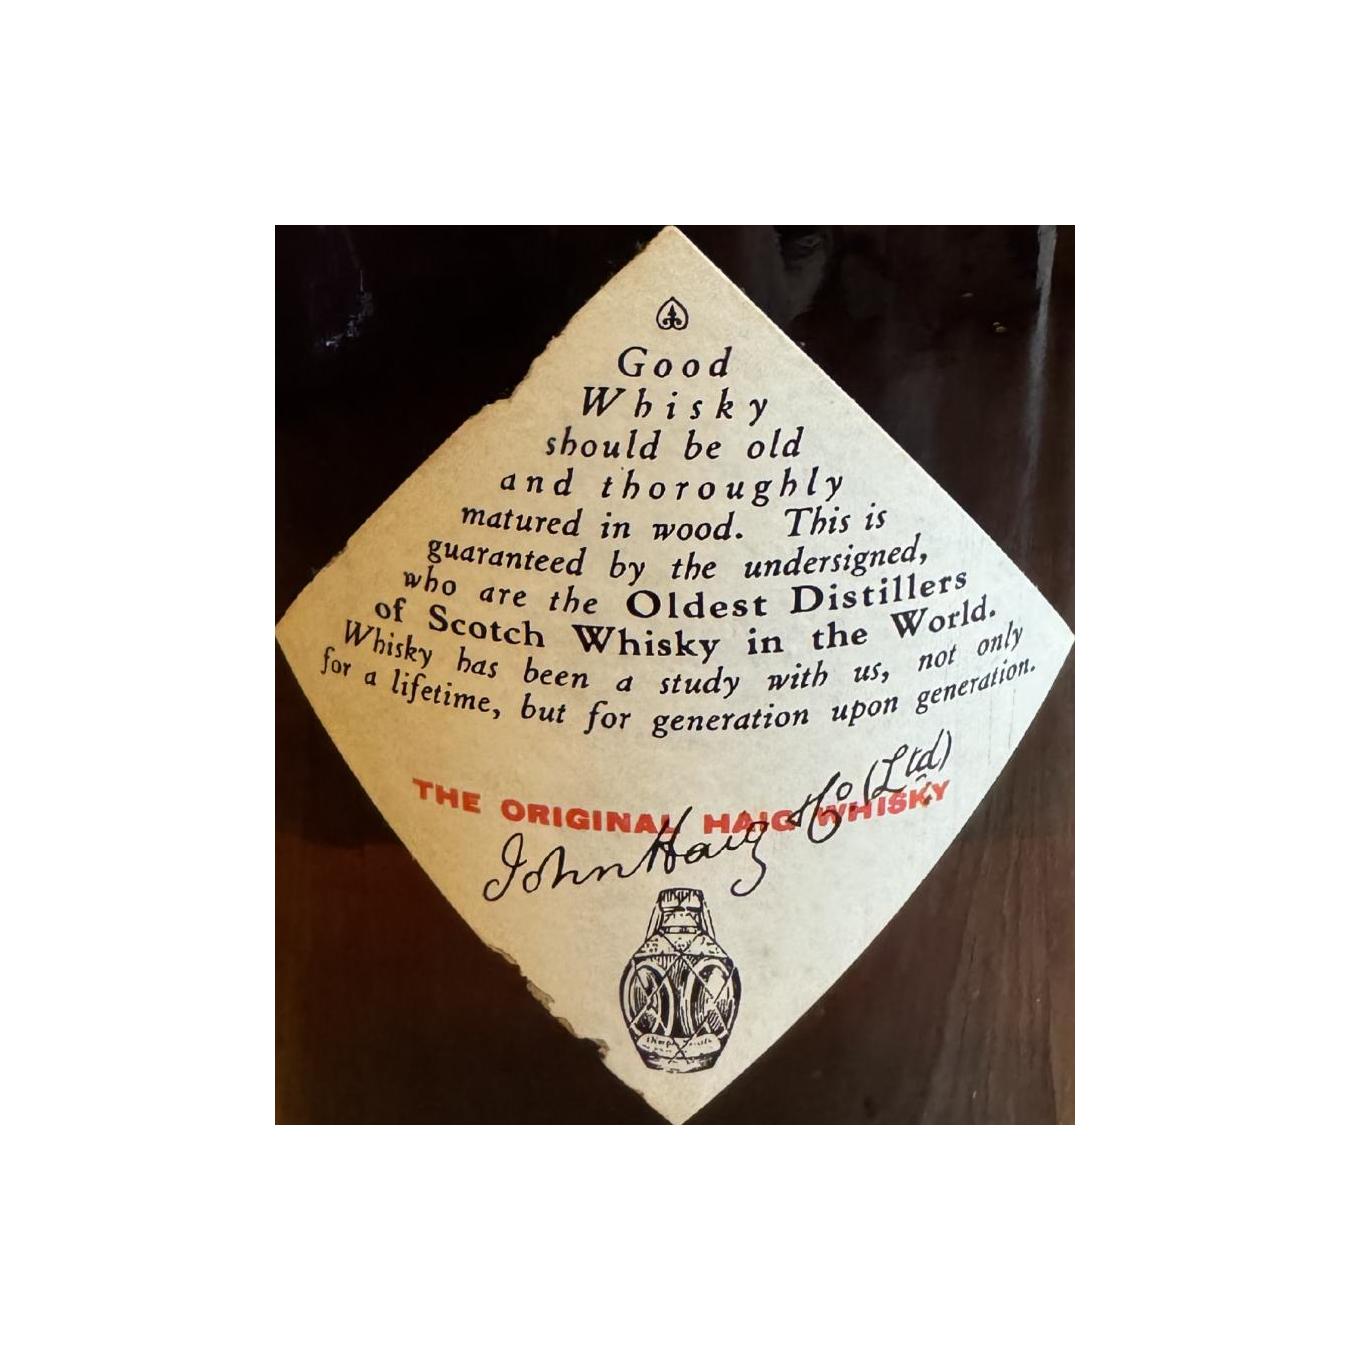 Good
Whisky
should be old
and thoroughly
matured in wood. This is
guaranteed by the undersigned,
who are the Oldest Distillers
of Scotch Whisky in the World.
Whisky has been a study with us, not only
for a lifetime, but for generation upon generation.
THE ORIGINAL HAIG WHISKY
John Haig & Co. (Ltd)